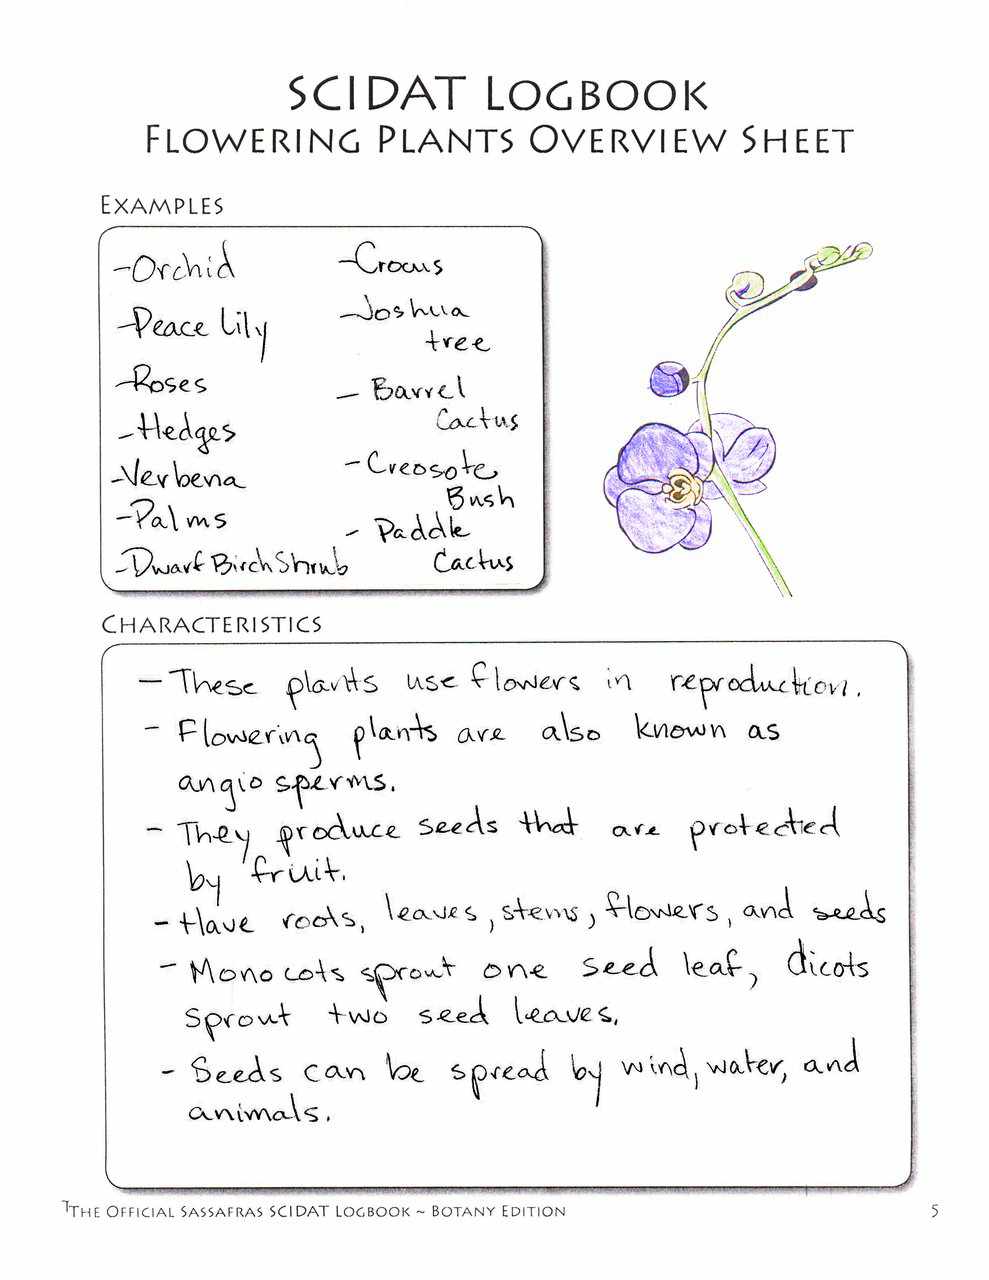 SCIDAT LOGBOOK
FLOWERING PLANTS OVERVIEW SHEET
EXAMPLES
-Orchid
-Peace Lily
-Roses
-Hedges
-Verbena
-Palms
-Dwarf Birch Shrub
-Crocus
-Joshua
tree
- Barrel
Cactus
-Creosote
Bush
- Paddle
Cactus
CHARACTERISTICS
- These plants use flowers in reproduction.
- Flowering plants are also known as
angiosperms.
- They produce seeds that are protected
by fruit.
- Have roots, leaves, stems, flowers, and seeds
- Monocots sprout one seed leaf, dicots
sprout two seed leaves.
- Seeds can be spread by wind, water, and
animals.
THE OFFICIAL SASSAFRAS SCIDAT LOGBOOK ~ BOTANY EDITION
5